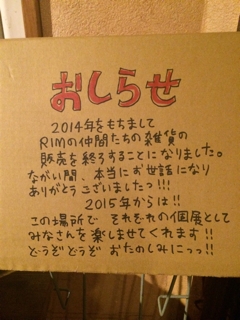 おしらせ
2014年をもちまして
RIMの仲間たちの雑貨の
販売を終了することになりました。
ながい間、本当にお世話になり
ありがとうございましたっ!!!
2015年からは!!
この場所で それぞれの個展として
みなさんを楽しませてくれます!!
どうぞどうぞ おたのしみにっっ!!